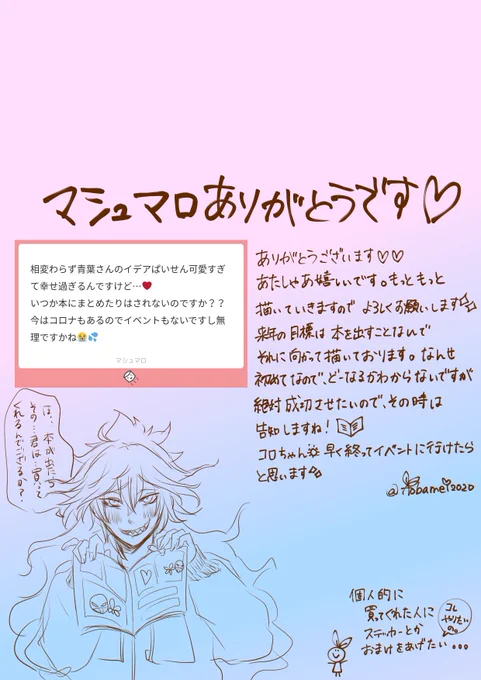 マシュマロありがとうです♡
相変わらず青葉さんのイデアぱいせん可愛すぎ
て幸せ過ぎるんですけど…❤️
いつか本にまとめたりはされないのですか？？
今はコロナもあるのでイベントもないですし無
理ですかね😭💦
マシュマロ
ありがとうございます♡♡
あたしゃあ嬉しいです。もっともっと
描いていきますので よろしくお願いします
来年の目標は 本を出すことなんで
それに向かって描いております。なんせ
初めてなので、どーなるかわからないですが
絶対 成功させたいので、その時は
告知しますね！
コロちゃん 早く終ってイベントに行けたら
と思います
は、本が出たら
その…君は…買って
くれるんでござるか？
個人的に
買ってくれた人に
ステッカーとか
おまけをあげたい…
コレ
やりたい
の。